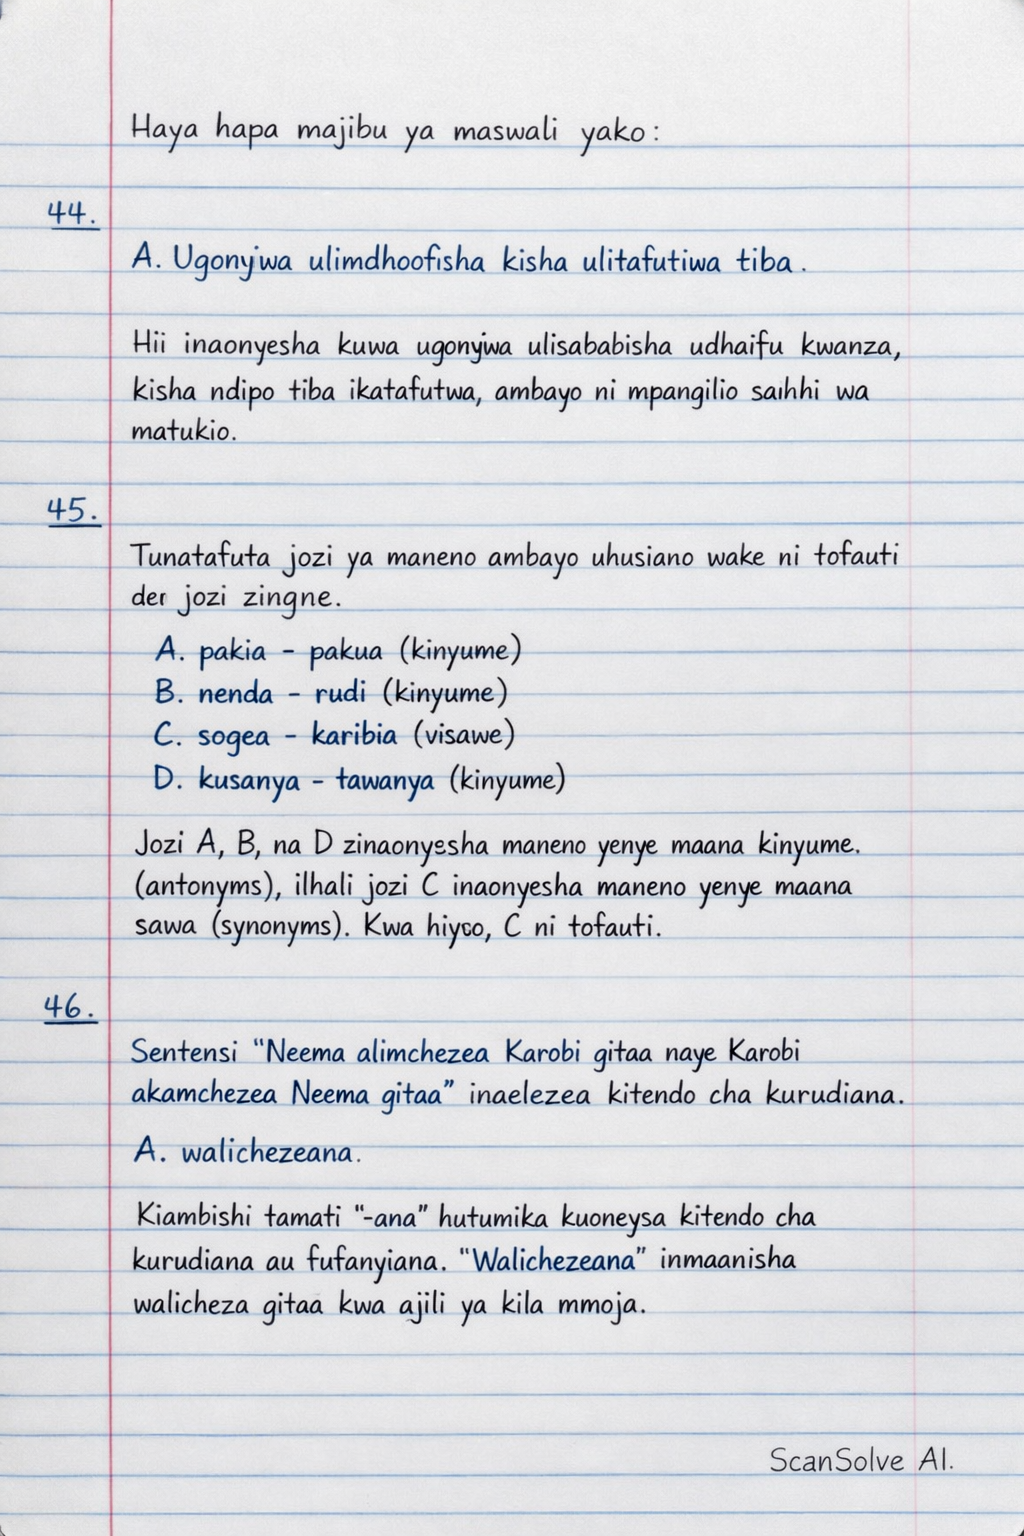 Haya hapa majibu ya maswali yako:
44.
A. Ugonjwa ulimdhoofisha kisha ulitafutiwa tiba.
Hii inaonyesha kuwa ugonjwa ulisababisha udhaifu kwanza,
kisha ndipo tiba ikatafutwa, ambayo ni mpangilio saihhi wa
matukio.
45.
Tunatafuta jozi ya maneno ambayo uhusiano wake ni tofauti
jozi zingne.
A. pakia - pakua (kinyume)
B. nenda - rudi (kinyume)
C. sogea - karibia (visawe)
D. kusanya - tawanya (kinyume)
Jozi A, B, na D zinaonyesha maneno yenye maana kinyume.
(antonyms), ilhali jozi C inaonyesha maneno yenye maana
sawa (synonyms). Kwa C ni tofauti.
46.
Sentensi "Neema alimchezea Karobi gitaa naye Karobi
akamchezea Neema gitaa" inaelezea kitendo cha kurudiana.
A. walichezeana.
Kiambishi tamati "-ana" hutumika kuoneysa kitendo cha
kurudiana au fufanyiana. "Walichezeana" inmaanisha
walicheza gitaa kwa ajili ya kila mmoja.
ScanSolve AI.